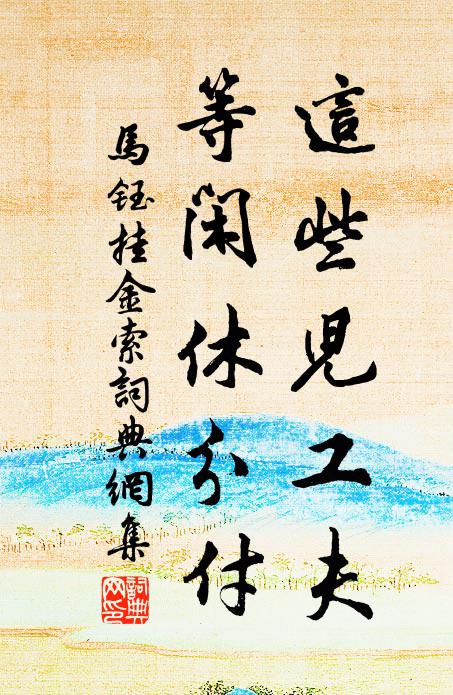 這些兒工夫
等閑休分付
馬鈺挂金索詞典網集
詞典网印